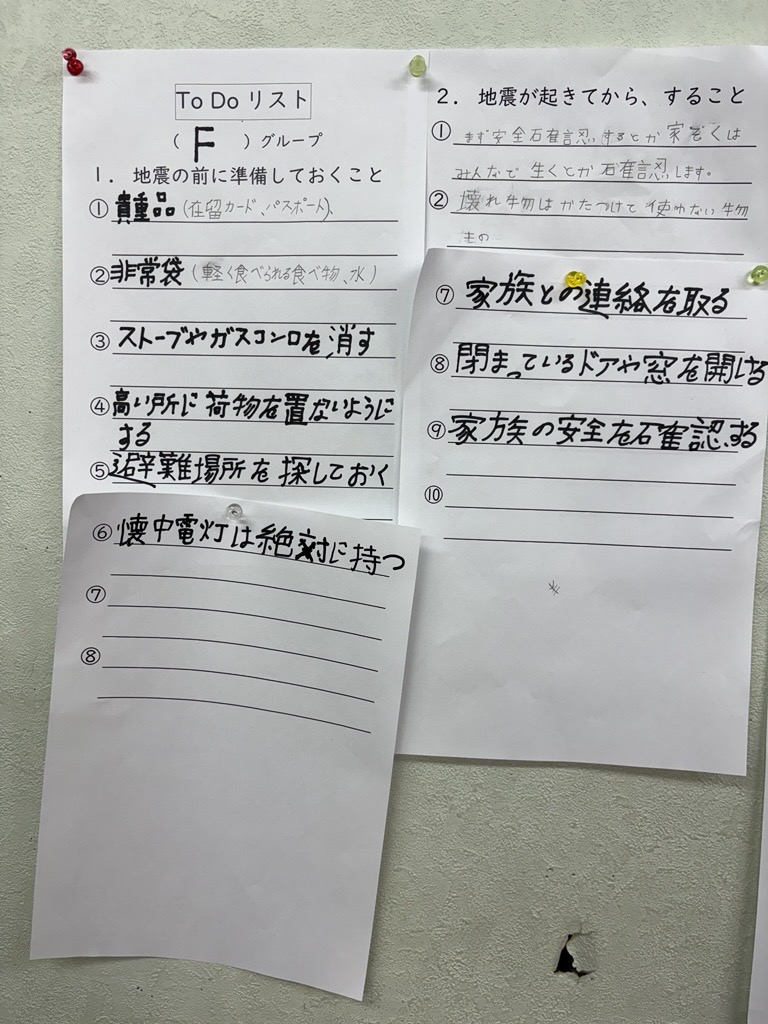 To Do リスト
( F ) グループ
1. 地震の前に準備しておくこと
① 貴重品 (在留カード、パスポート)、
② 非常袋 (軽く食べられる食べ物、水)
③ ストーブやガスコンロを消す
④ 高い所に荷物を置ないように
する
⑤ 避難場所を探しておく
⑥ 懐中電灯は絶対に持つ
⑦
⑧
2. 地震が起きてから、すること
① まず安全確認するとか家ぞくは
みんなで生くとか確認します。
② 壊れ物はかたつけて使わない物
もの
⑦ 家族との連絡を取る
⑧ 閉まっているドアや窓を開ける
⑨ 家族の安全を確認する
⑩